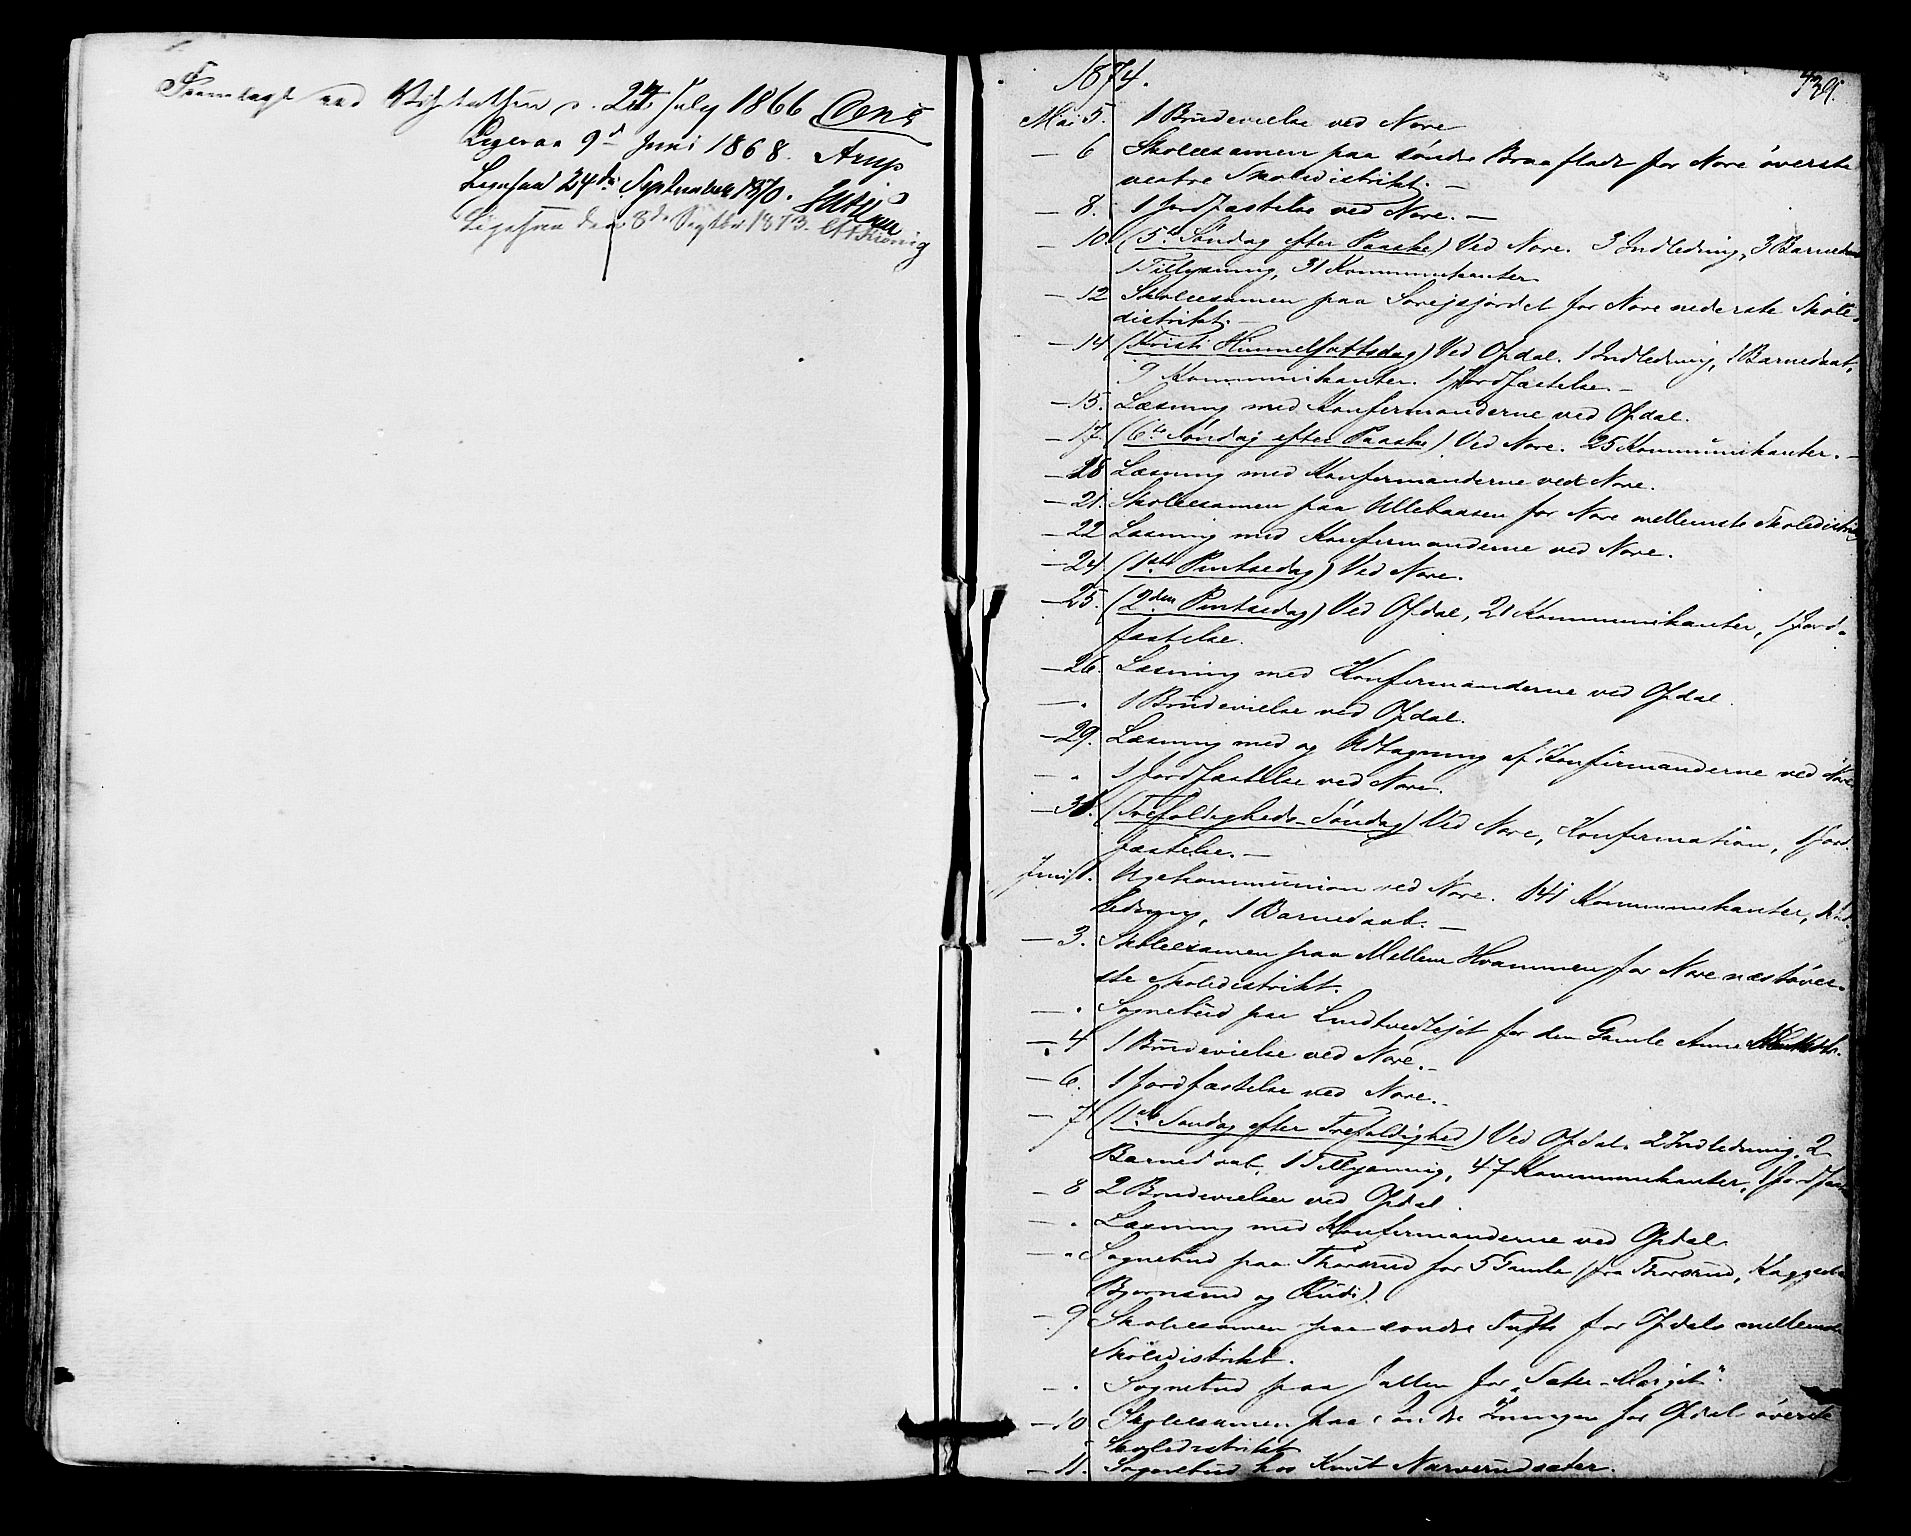 Fremlagt ved Visitatsen d. 24 July 1866
Ligesaa 9d Juni 1868. Arup
Ligesaa 24de September 1870.
Ligesaa den 8de Septbr 1873.
439.
1874.
Mai 5. 1 Brudevielse ved Nore
— 6 Skoleexamen paa søndre Braafladt for Nore øverste
vestre Skoledistrikt. —
— 8. 1 Jordfæstelse ved Nore. —
— 10. (5te Søndag efter Paaske) Ved Nore. 3 Indledning, 3 Barnedaab
1 Tillysning, 31 Kommunikanter
— 12 Skoleexamen paa for Nore nederste Skole-
distrikt. —
— 14 (Kristi Himmelfartsdag) Ved Opdal. 1 Indledning, 1 Barnedaab,
9 Kommunikanter. 1 Jordfæstelse. —
— 15. Læsning med Konfirmanderne ved Opdal.
— 17. (6te Søndag efter Paaske) Ved Nore. 25 Kommunikanter. —
— 18 Læsning med Konfirmanderne ved Nore.
— 21. Skoleexamen paa for Nore mellemste Skoledistrikt
— 22 Læsning med Konfirmanderne ved Nore.
— 24. (1ste Pintsedag) Ved Nore.
— 25. (2den Pintsedag) Ved Opdal, 21 Kommunikanter, 1 Jord-
fæstelse.
— 26. Læsning med Konfirmanderne ved Opdal.
— „ 1 Brudevielse ved Opdal.
— 29. Læsning med og Udtagning af Konfirmanderne ved Nore
— „ 1 Jordfæstelse ved Nore.
— 31. (Trefoldigheds-Søndag) Ved Nore, Konfirmation, 1 Jord-
fæstelse. —
Juni 1. Ugekommunion ved Nore. 141 Kommunikanter, 1 Ind-
ledning, 1 Barnedaab. —
— 3. Skoleexamen paa Mellem Hvammen for Nore næstøver-
ste Skoledistrikt.
— „ Sognebud paa for den Gamle Anne
— 4 1 Brudevielse ved Nore. —
— 6. 1 Jordfæstelse ved Nore. —
— 7 (1ste Søndag efter Trefoldighed) Ved Opdal. 2 Indledning, 2
Barnedaab, 1 Tillysning, 47 Kommunikanter, 1 Jordfæst
— 8 2 Brudevielser ved Opdal.
— „ Læsning med Konfirmanderne ved Opdal
— „ Sognebud paa Thorsrud for 5 Gamle (fra Thorsrud,
Bjornsrud og Ruud).
— 9 Skoleexamen paa søndre Tufte for Opdals mellemste
Skoledistrikt.
— „ Sognebud paa for „Sæter-Margit“.
— 10 Skoleexamen paa søndre for Opdal øverste
Skoledistrikt
— 11. Sognebud hos Knut Narverudsæter.